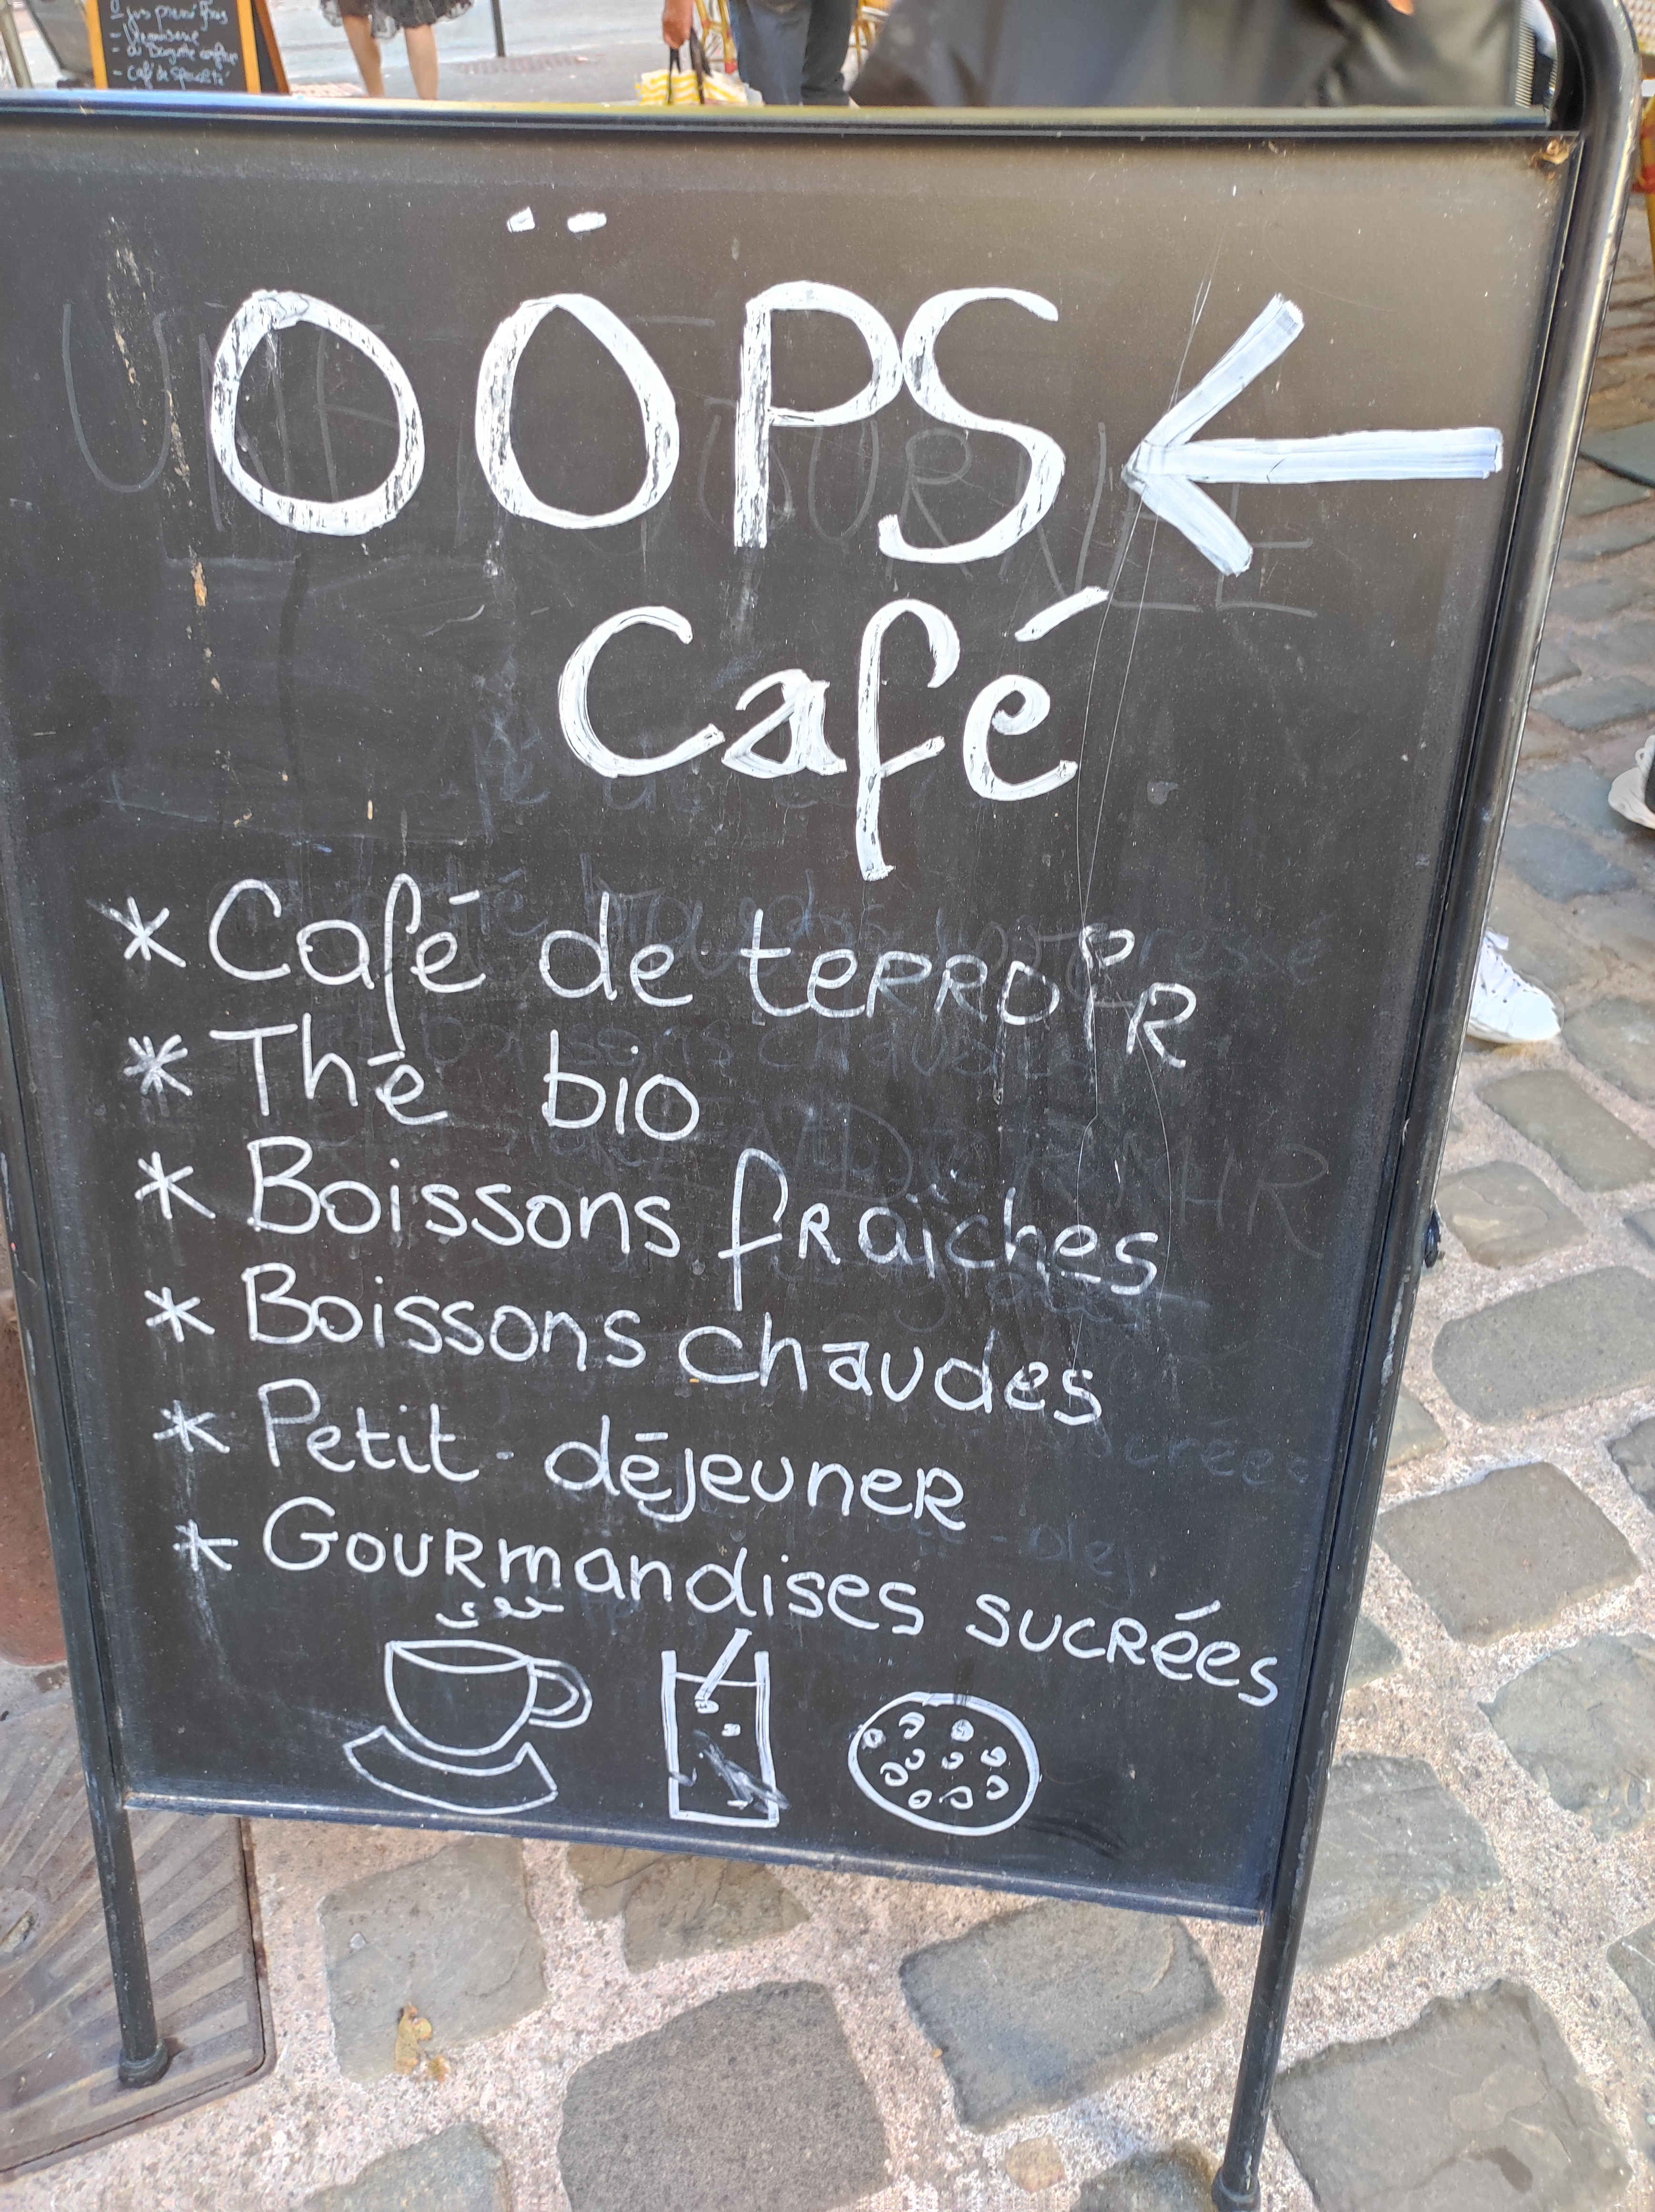 OÖPS
Café
* Café de terroir
* Thé bio
* Boissons fraîches
* Boissons chaudes
* Petit-déjeuner
* Gourmandises sucrées